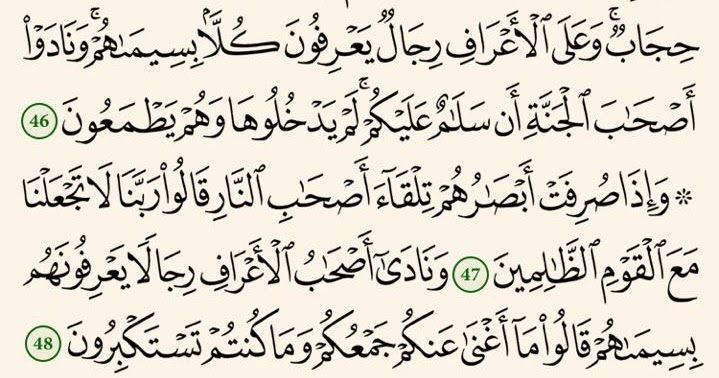 حِجَابٌۚ وَعَلَى ٱلْأَعْرَافِ رِجَالٌ يَعْرِفُونَ كُلَّۢا بِسِيمَىٰهُمْۚ وَنَادَوْا۟
أَصْحَـٰبَ ٱلْجَنَّةِ أَن سَلَـٰمٌ عَلَيْكُمْۚ لَمْ يَدْخُلُوهَا وَهُمْ يَطْمَعُونَ 46
* وَإِذَا صُرِفَتْ أَبْصَـٰرُهُمْ تِلْقَآءَ أَصْحَـٰبِ ٱلنَّارِ قَالُوا۟ رَبَّنَا لَا تَجْعَلْنَا
مَعَ ٱلْقَوْمِ ٱلظَّـٰلِمِينَ 47 وَنَادَىٰٓ أَصْحَـٰبُ ٱلْأَعْرَافِ رِجَالًا يَعْرِفُونَهُم
بِسِيمَىٰهُمْ قَالُوا۟ مَآ أَغْنَىٰ عَنكُمْ جَمْعُكُمْ وَمَا كُنتُمْ تَسْتَكْبِرُونَ 48